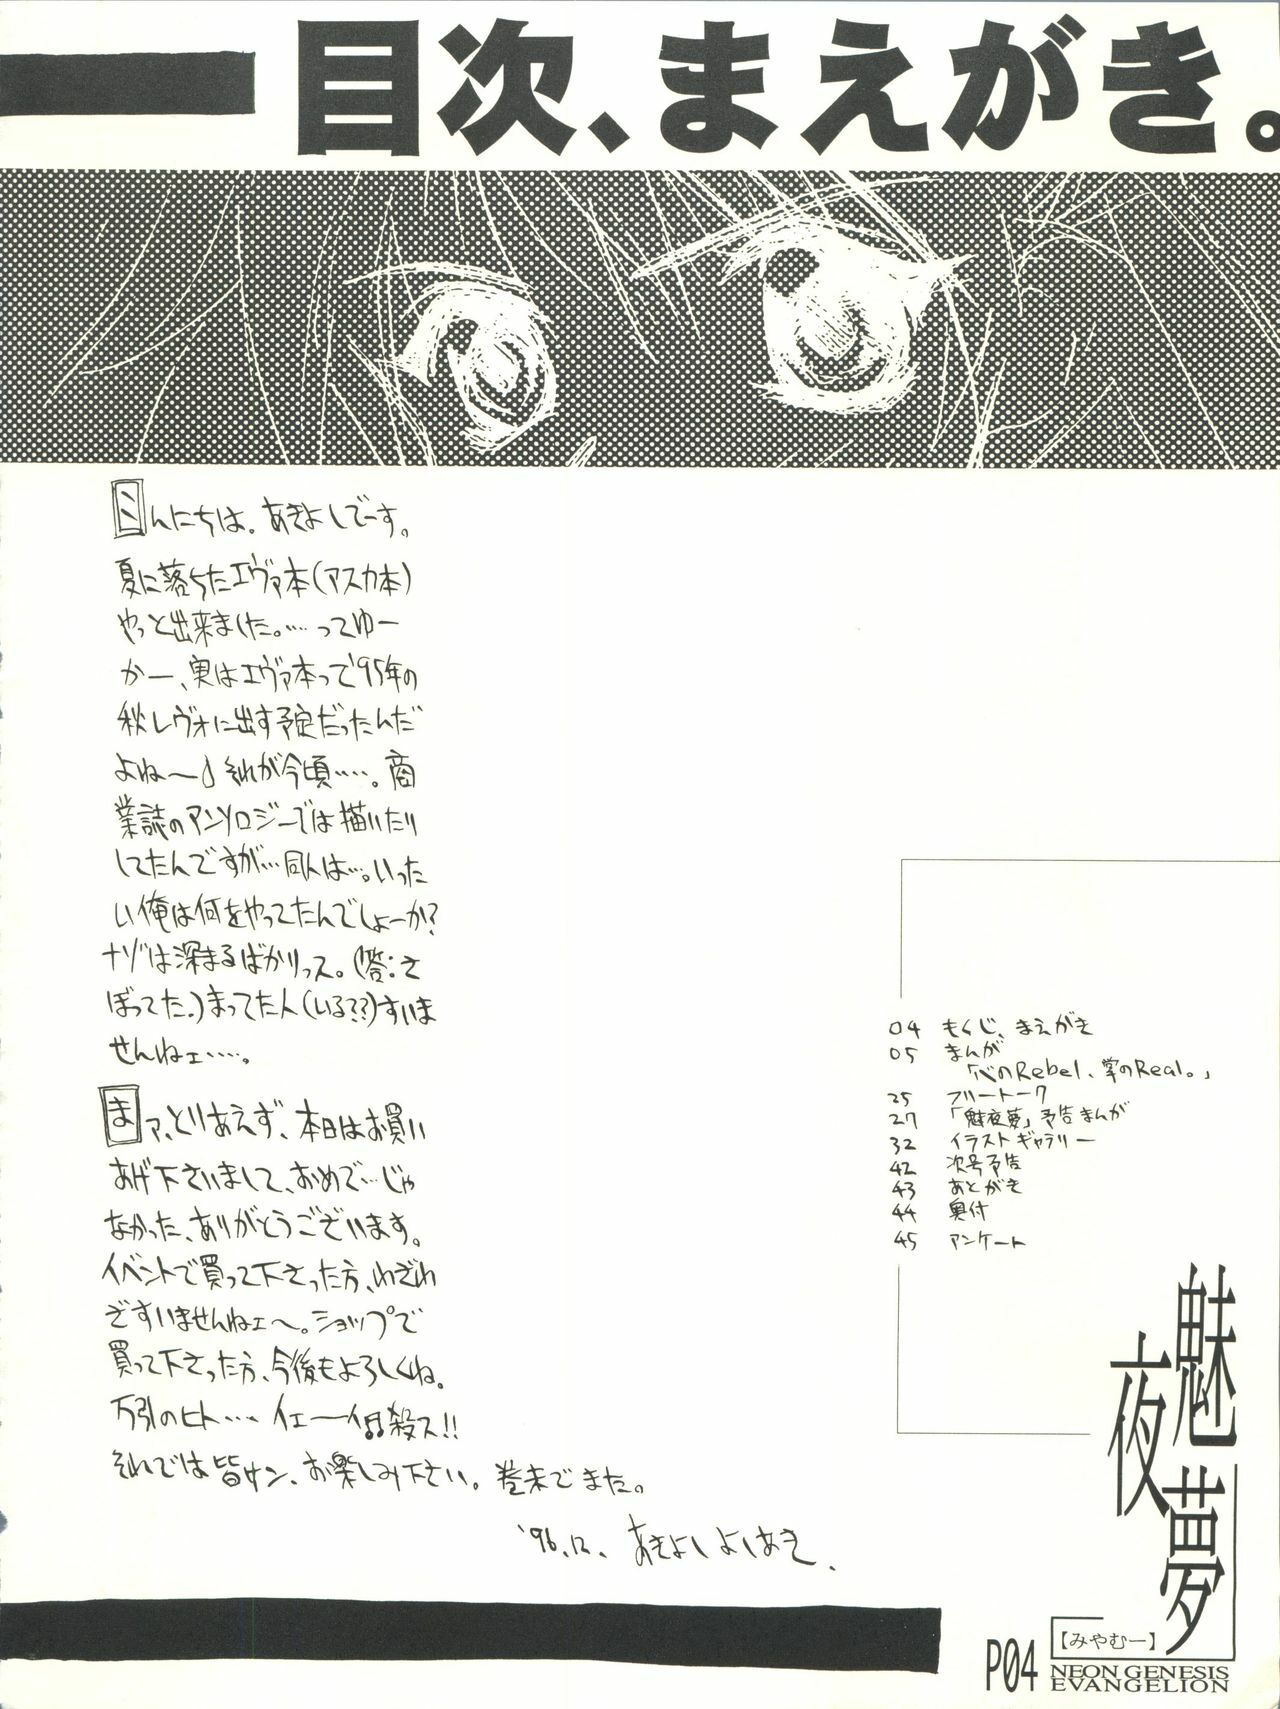 目次、まえがき。
こんにちは。あきよしでーす。
夏に落ちたエヴァ本(アスカ本)
やっと出来ました。……ってゆー
かー、実はエヴァ本って'95年の
秋レヴォに出す予定だったんだ
よね〜♪それが今頃……。商
業誌のアンソロジーでは描いたり
してたんですが…同人は…。いった
い俺は何をやってたんでしょーか?
ナゾは深まるばかりっス。(答:さ
ぼってた。)まってた人(いる??)すいま
せんねェ……。
まァ、とりあえず、本日はお買い
あげ下さいまして、おめで…じゃ
なかった、ありがとうございます。
イベントで買って下さった方、わざわ
ざすいませんねェ〜。ショップで
買って下さった方、今後もよろしくね。
万引のヒト…… イェーイ♫殺ス!!
それでは皆サン、お楽しみ下さい。巻末でまた。
'96.12. あきよしよしあき.
04 もくじ、まえがき
05 まんが
「心のRebel、掌のReal。」
25 フリートーク
27 「魅夜夢」予告まんが
32 イラストギャラリー
42 次号予告
43 あとがき
44 奥付
45 アンケート
魅夜夢
【みやむー】
P04
NEON GENESIS
EVANGELION